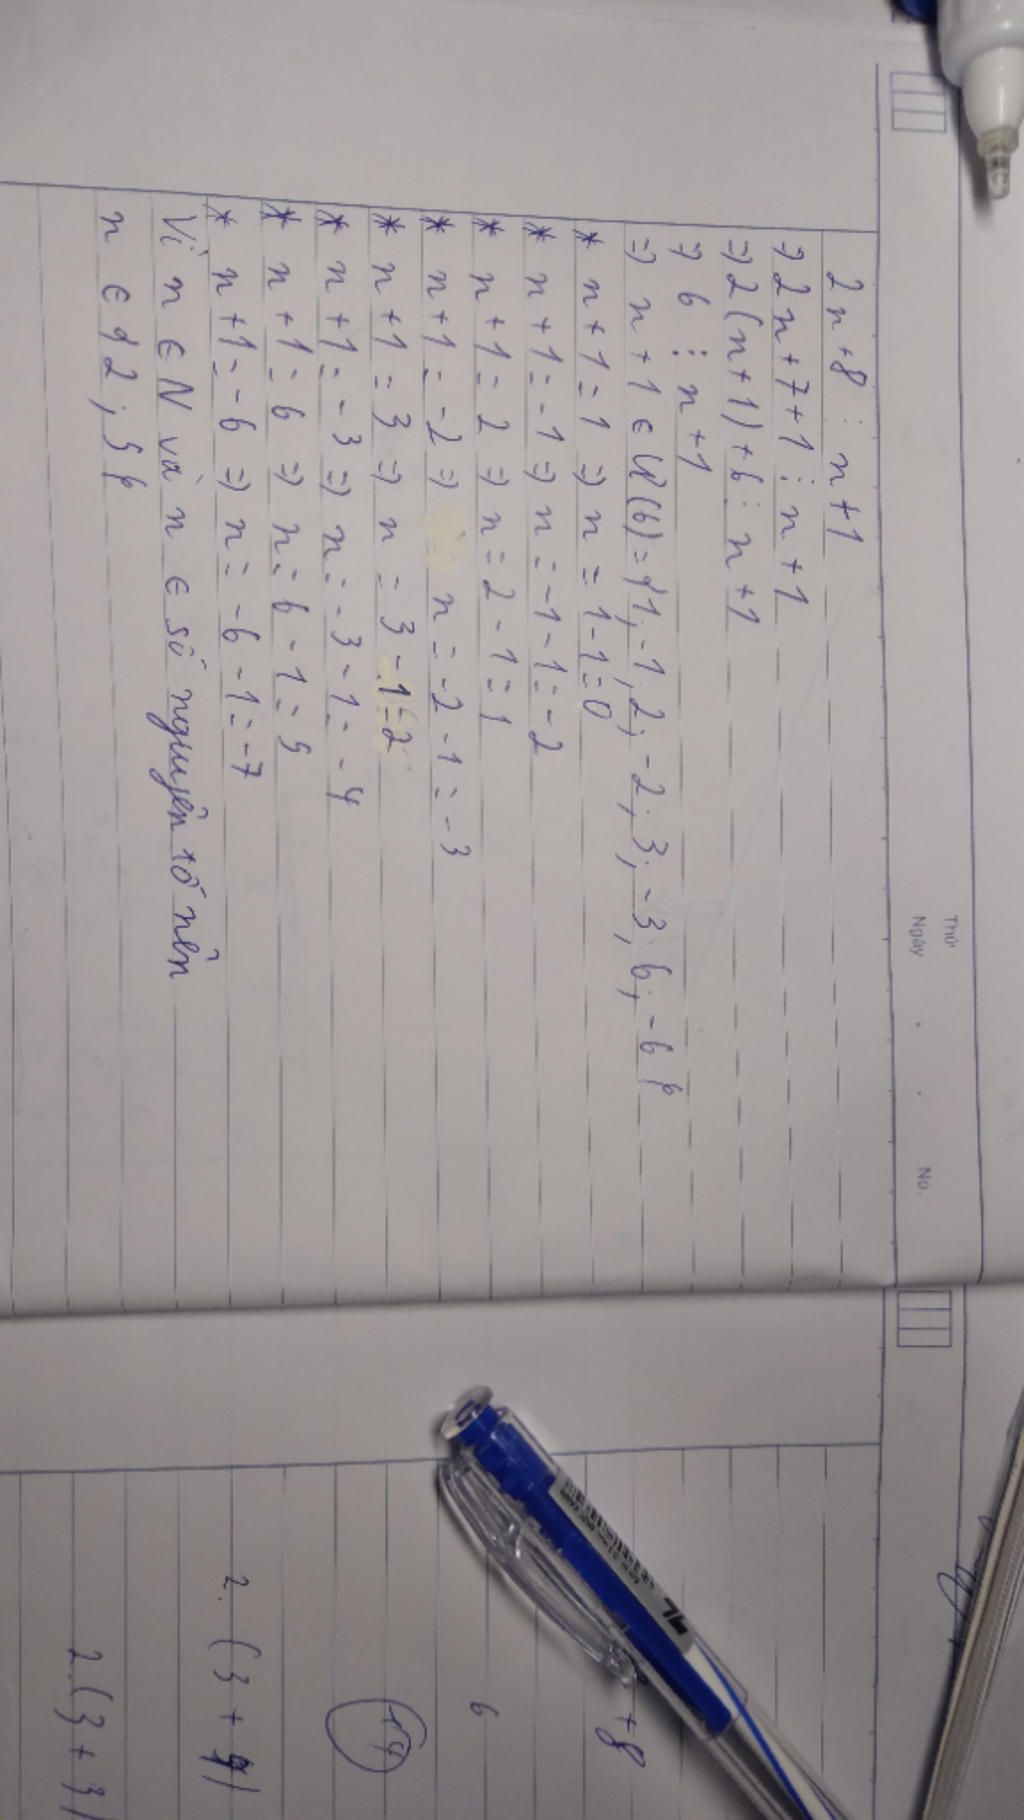 Thứ
Ngày . . No.
2n+8 ⋮ n+1
⇒ 2n+7+1 ⋮ n+1
⇒ 2(n+1)+6 ⋮ n+1
⇒ 6 ⋮ n+1
⇒ n+1 ∈ Ư(6)={1,-1,2,-2,3,-3,6,-6}
* n+1=1 ⇒ n=1-1=0
* n+1=-1 ⇒ n=-1-1=-2
* n+1=2 ⇒ n=2-1=1
* n+1=-2 ⇒ n=-2-1=-3
* n+1=3 ⇒ n=3-1=2
* n+1=-3 ⇒ n=-3-1=-4
* n+1=6 ⇒ n=6-1=5
* n+1=-6 ⇒ n=-6-1=-7
Vì n ∈ N và n ∈ số nguyên tố nên
n ∈ {2;5}
+8
6
14
2.(3+4)
2.(3+3)